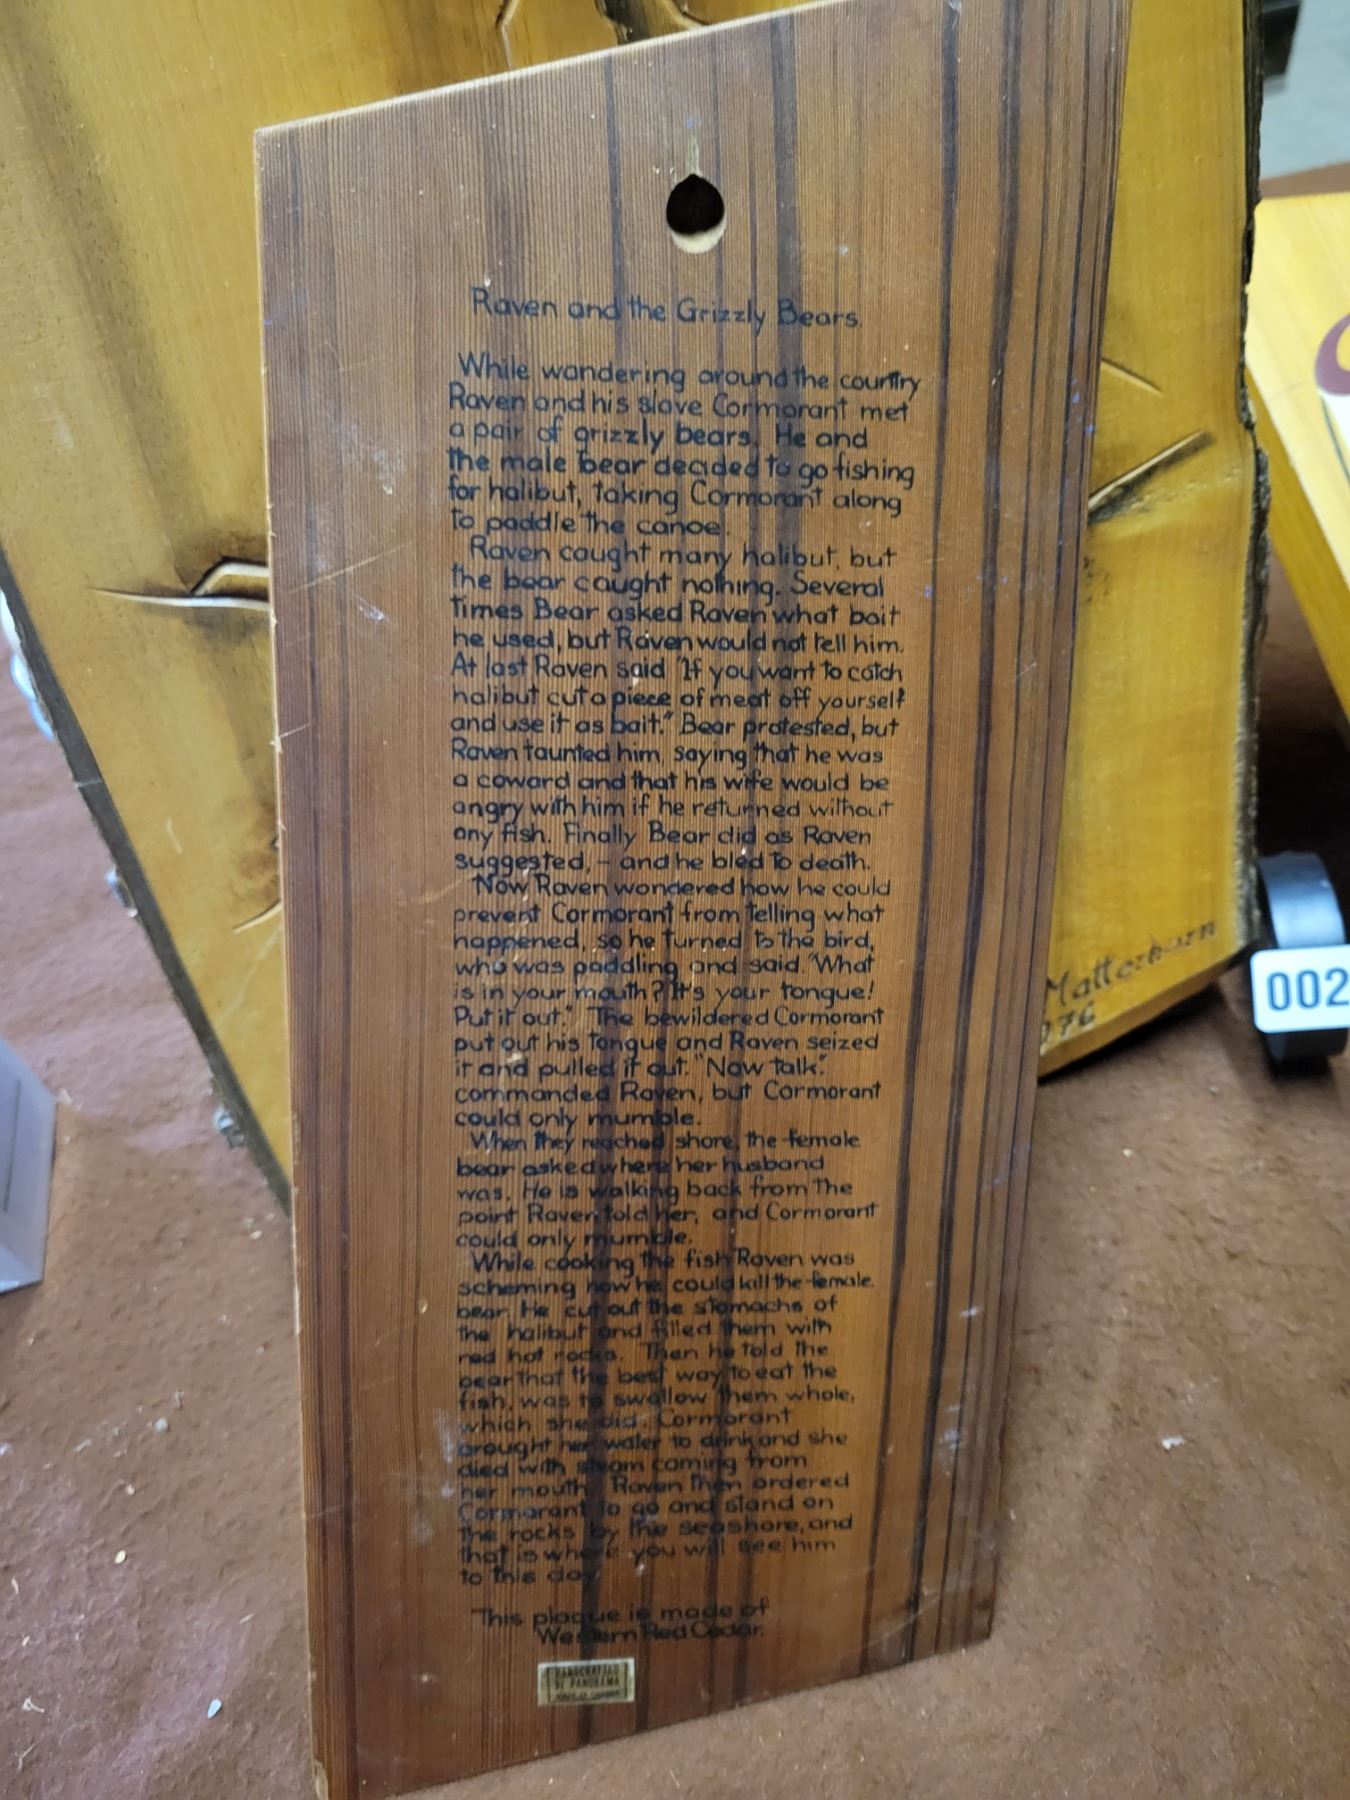 Raven and the Grizzly Bears
While wandering around the country
Raven and his slave Cormorant met
a pair of grizzly bears. He and
the male bear decided to go fishing
for halibut, taking Cormorant along
to paddle the canoe.
Raven caught many halibut, but
the bear caught nothing. Several
times Bear asked Raven what bait
he used, but Raven would not tell him.
At last Raven said "If you want to catch
halibut cut a piece of meat off yourself
and use it as bait." Bear protested, but
Raven taunted him, saying that he was
a coward and that his wife would be
angry with him if he returned without
any fish. Finally Bear did as Raven
suggested, - and he bled to death.
Now Raven wondered how he could
prevent Cormorant from telling what
happened, so he turned to the bird,
who was paddling and said. "What
is in your mouth? It's your tongue!
Put it out." The bewildered Cormorant
put out his tongue and Raven seized
it and pulled it out. "Now talk".
commanded Raven, but Cormorant
could only mumble.
When they reached shore, the female
bear asked where her husband
was. He is walking back from the
point Raven told her, and Cormorant
could only mumble.
While cooking the fish Raven was
scheming how he could kill the female
bear. He cut out the stomachs of
the halibut and filled them with
red hot rocks. Then he told the
bear that the best way to eat the
fish, was to swallow them whole,
which she did. Cormorant
brought her water to drink and she
died with steam coming from
her mouth. Raven then ordered
Cormorant to go and stand on
the rocks by the seashore, and
that is where you will see him
to this day.
This plaque is made of
Western Red Cedar.
HANDCRAFTED
BY PANORAMA
Matterhorn
976
002